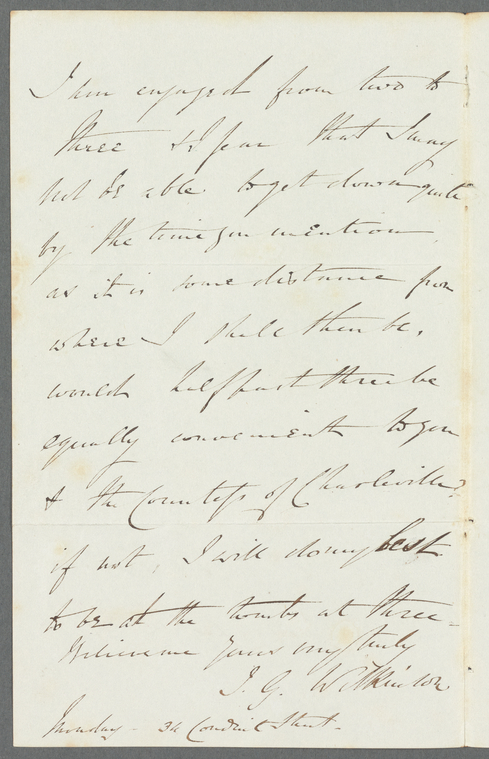 I am engaged from two to
three & I fear that I may
not be able to get down quite
by the time you mention,
as it is some distance from
where I shall then be,
would half past three be
equally convenient to you
& the Countess of Charleville?
if not, I will do my best
to be at the tombs at three -
Believe me Yours very truly
J. G. Wilkinson
Monday - 34 Conduit Street -